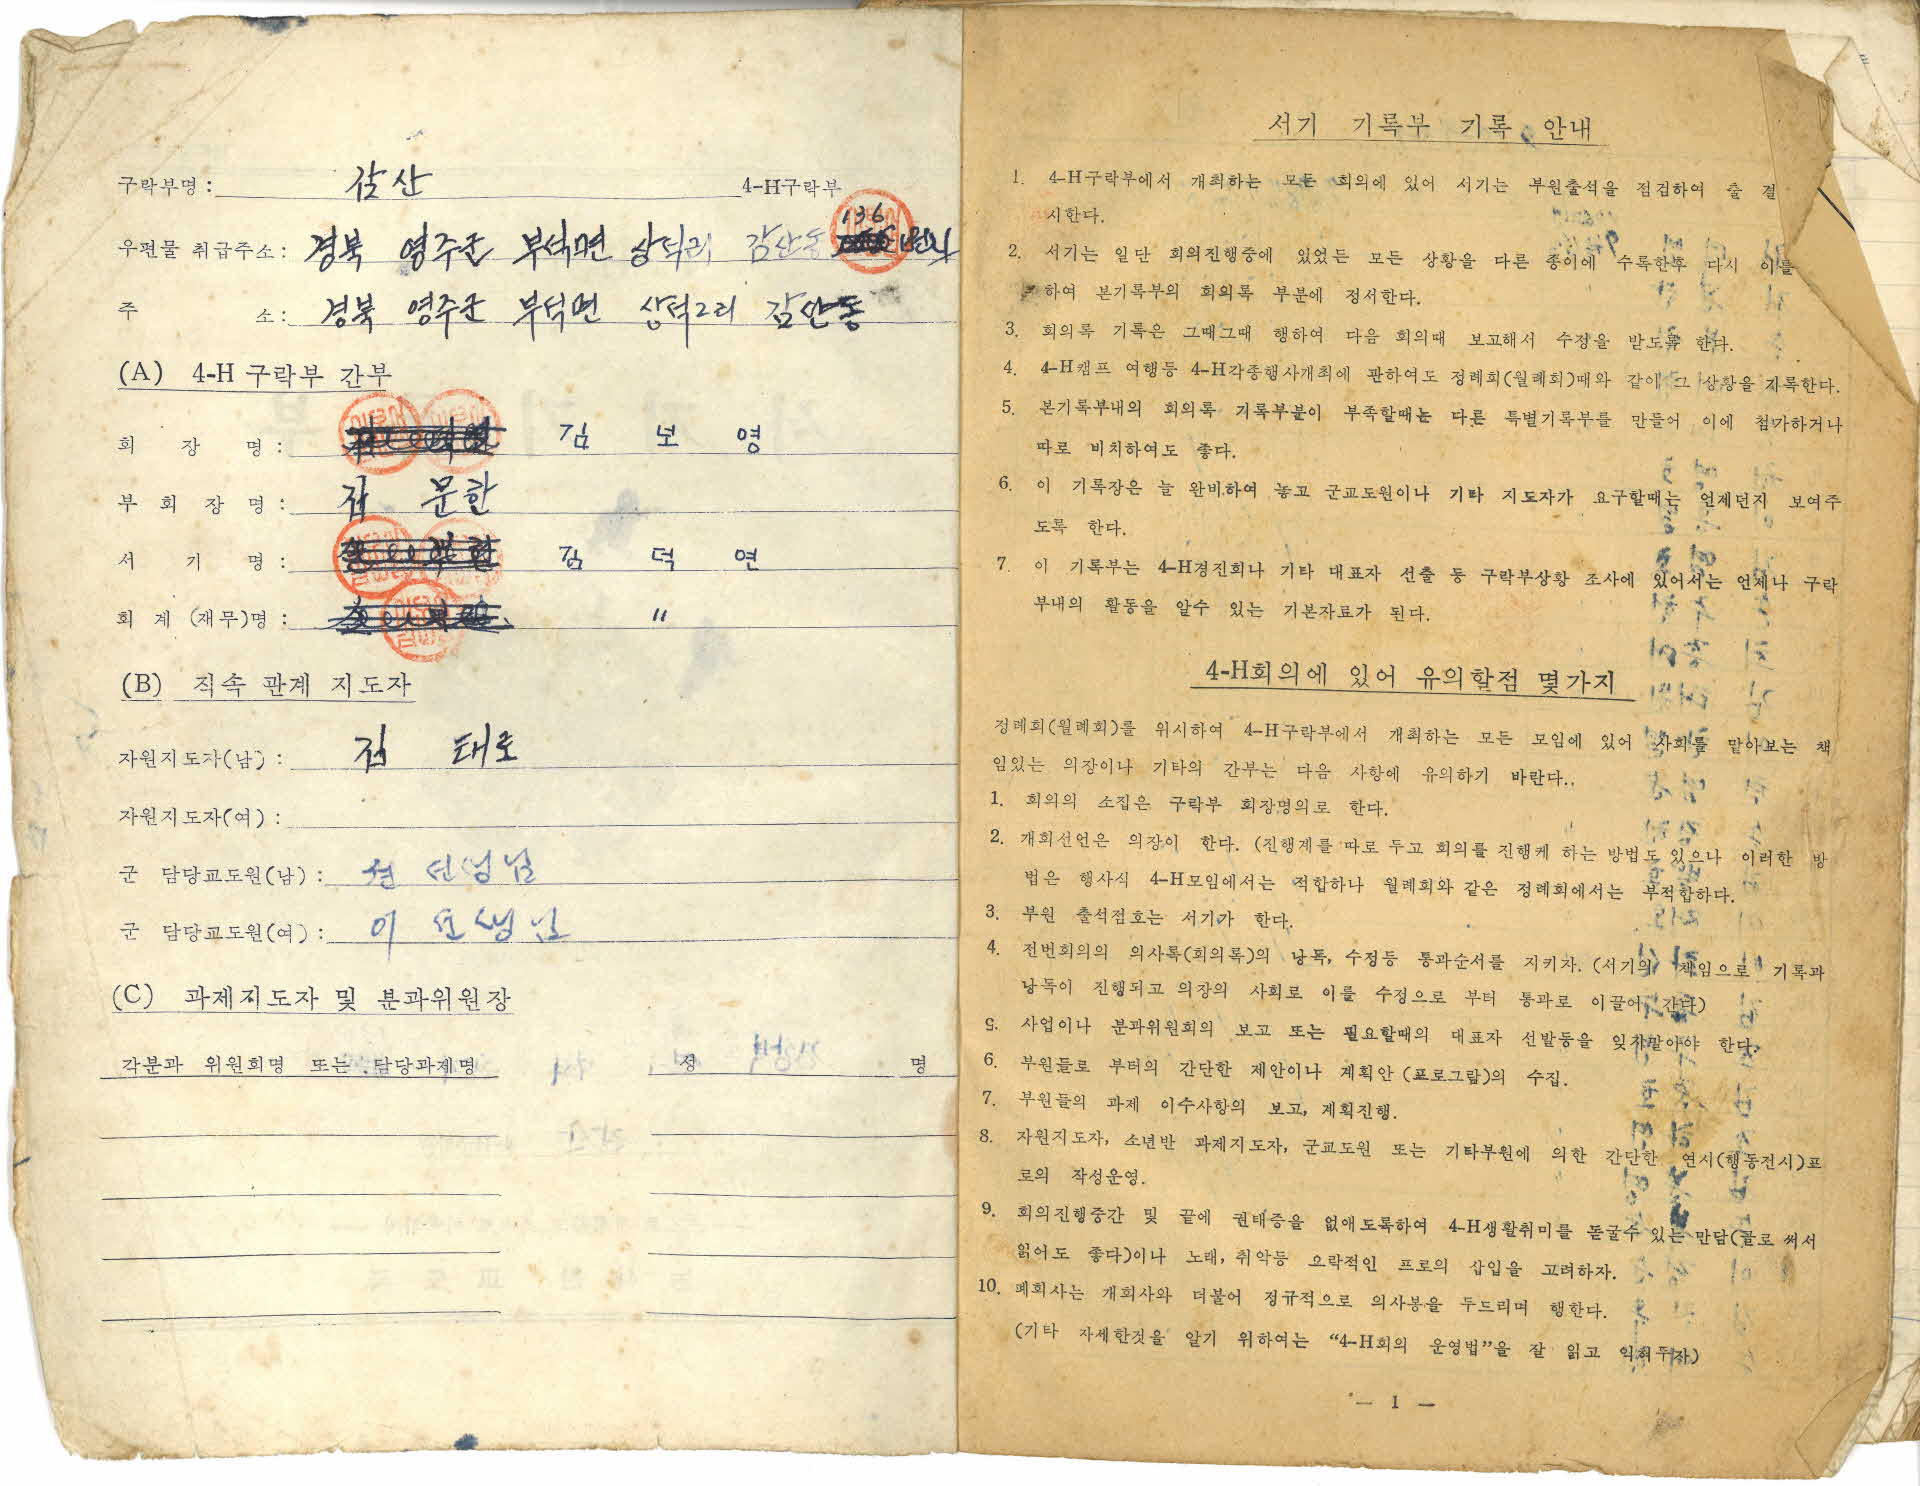 구락부명: 감산 4-H구락부
우편물 취급주소: 경북 영주군 부석면 상석리 감산동 136
주 소: 경북 영주군 부석면 상석2리 감산동
(A) 4-H 구락부 간부
회 장 명: 김 보 영
부 회 장 명: 문한
서 기 명: 김 덕 연
회 계 (재무)명: 〃
(B) 직속 관계 지도자
자원지도자(남): 김 태로
자원지도자(여):
군 담당교도원(남): 선생님
군 담당교도원(여): 이 선생님
(C) 과제지도자 및 분과위원장
각분과 위원회명 또는 담당과제명 성 명
서기 기록부 기록 안내
1. 4-H구락부에서 개최하는 모든 회의에 있어 서기는 부원출석을 점검하여 출 결
시한다.
2. 서기는 일단 회의진행중에 있었든 모든 상황을 다른 종이에 수록한후 다시 이를
하여 본기록부의 회의록 부분에 정서한다.
3. 회의록 기록은 그때그때 행하여 다음 회의때 보고해서 수정을 받도록 한다.
4. 4-H캠프 여행등 4-H각종행사개최에 관하여도 정례회(월례회)때와 같이 그 상황을 기록한다.
5. 본기록부내의 회의록 기록부분이 부족할때는 다른 특별기록부를 만들어 이에 첨가하거나
따로 비치하여도 좋다.
6. 이 기록장은 늘 완비하여 놓고 군교도원이나 기타 지도자가 요구할때는 언제던지 보여주
도록 한다.
7. 이 기록부는 4-H경진회나 기타 대표자 선출 등 구락부상황 조사에 있어서는 언제나 구락
부내의 활동을 알수 있는 기본자료가 된다.
4-H회의에 있어 유의할점 몇가지
정례회(월례회)를 위시하여 4-H구락부에서 개최하는 모든 모임에 있어 사회를 맡아보는 책
임있는 의장이나 기타의 간부는 다음 사항에 유의하기 바란다..
1. 회의의 소집은 구락부 회장명의로 한다.
2. 개회선언은 의장이 한다. (진행계를 따로 두고 회의를 진행케 하는 방법도 있으나 이러한 방
법은 행사식 4-H모임에서는 적합하나 월례회와 같은 정례회에서는 부적합하다.
3. 부원 출석점호는 서기가 한다.
4. 전번회의의 의사록(회의록)의 낭독, 수정등 통과순서를 지키자. (서기의 책임으로 기록과
낭독이 진행되고 의장의 사회로 이를 수정으로 부터 통과로 이끌어 간다)
5. 사업이나 분과위원회의 보고 또는 필요할때의 대표자 선발등을 잊지말아야 한다.
6. 부원들로 부터의 간단한 제안이나 계획안 (프로그람)의 수집.
7. 부원들의 과제 이수사항의 보고, 계획진행.
8. 자원지도자, 소년반 과제지도자, 군교도원 또는 기타부원에 의한 간단한 연시(행동전시)프
로의 작성운영.
9. 회의진행중간 및 끝에 권태증을 없애도록하여 4-H생활취미를 돋굴수 있는 만담(글로 써서
읽어도 좋다)이나 노래, 취악등 오락적인 프로의 삽입을 고려하자.
10. 폐회사는 개회사와 더불어 정규적으로 의사봉을 두드리며 행한다.
(기타 자세한것을 알기 위하여는 “4-H회의 운영법”을 잘 읽고 익혀두자)
— 1 —